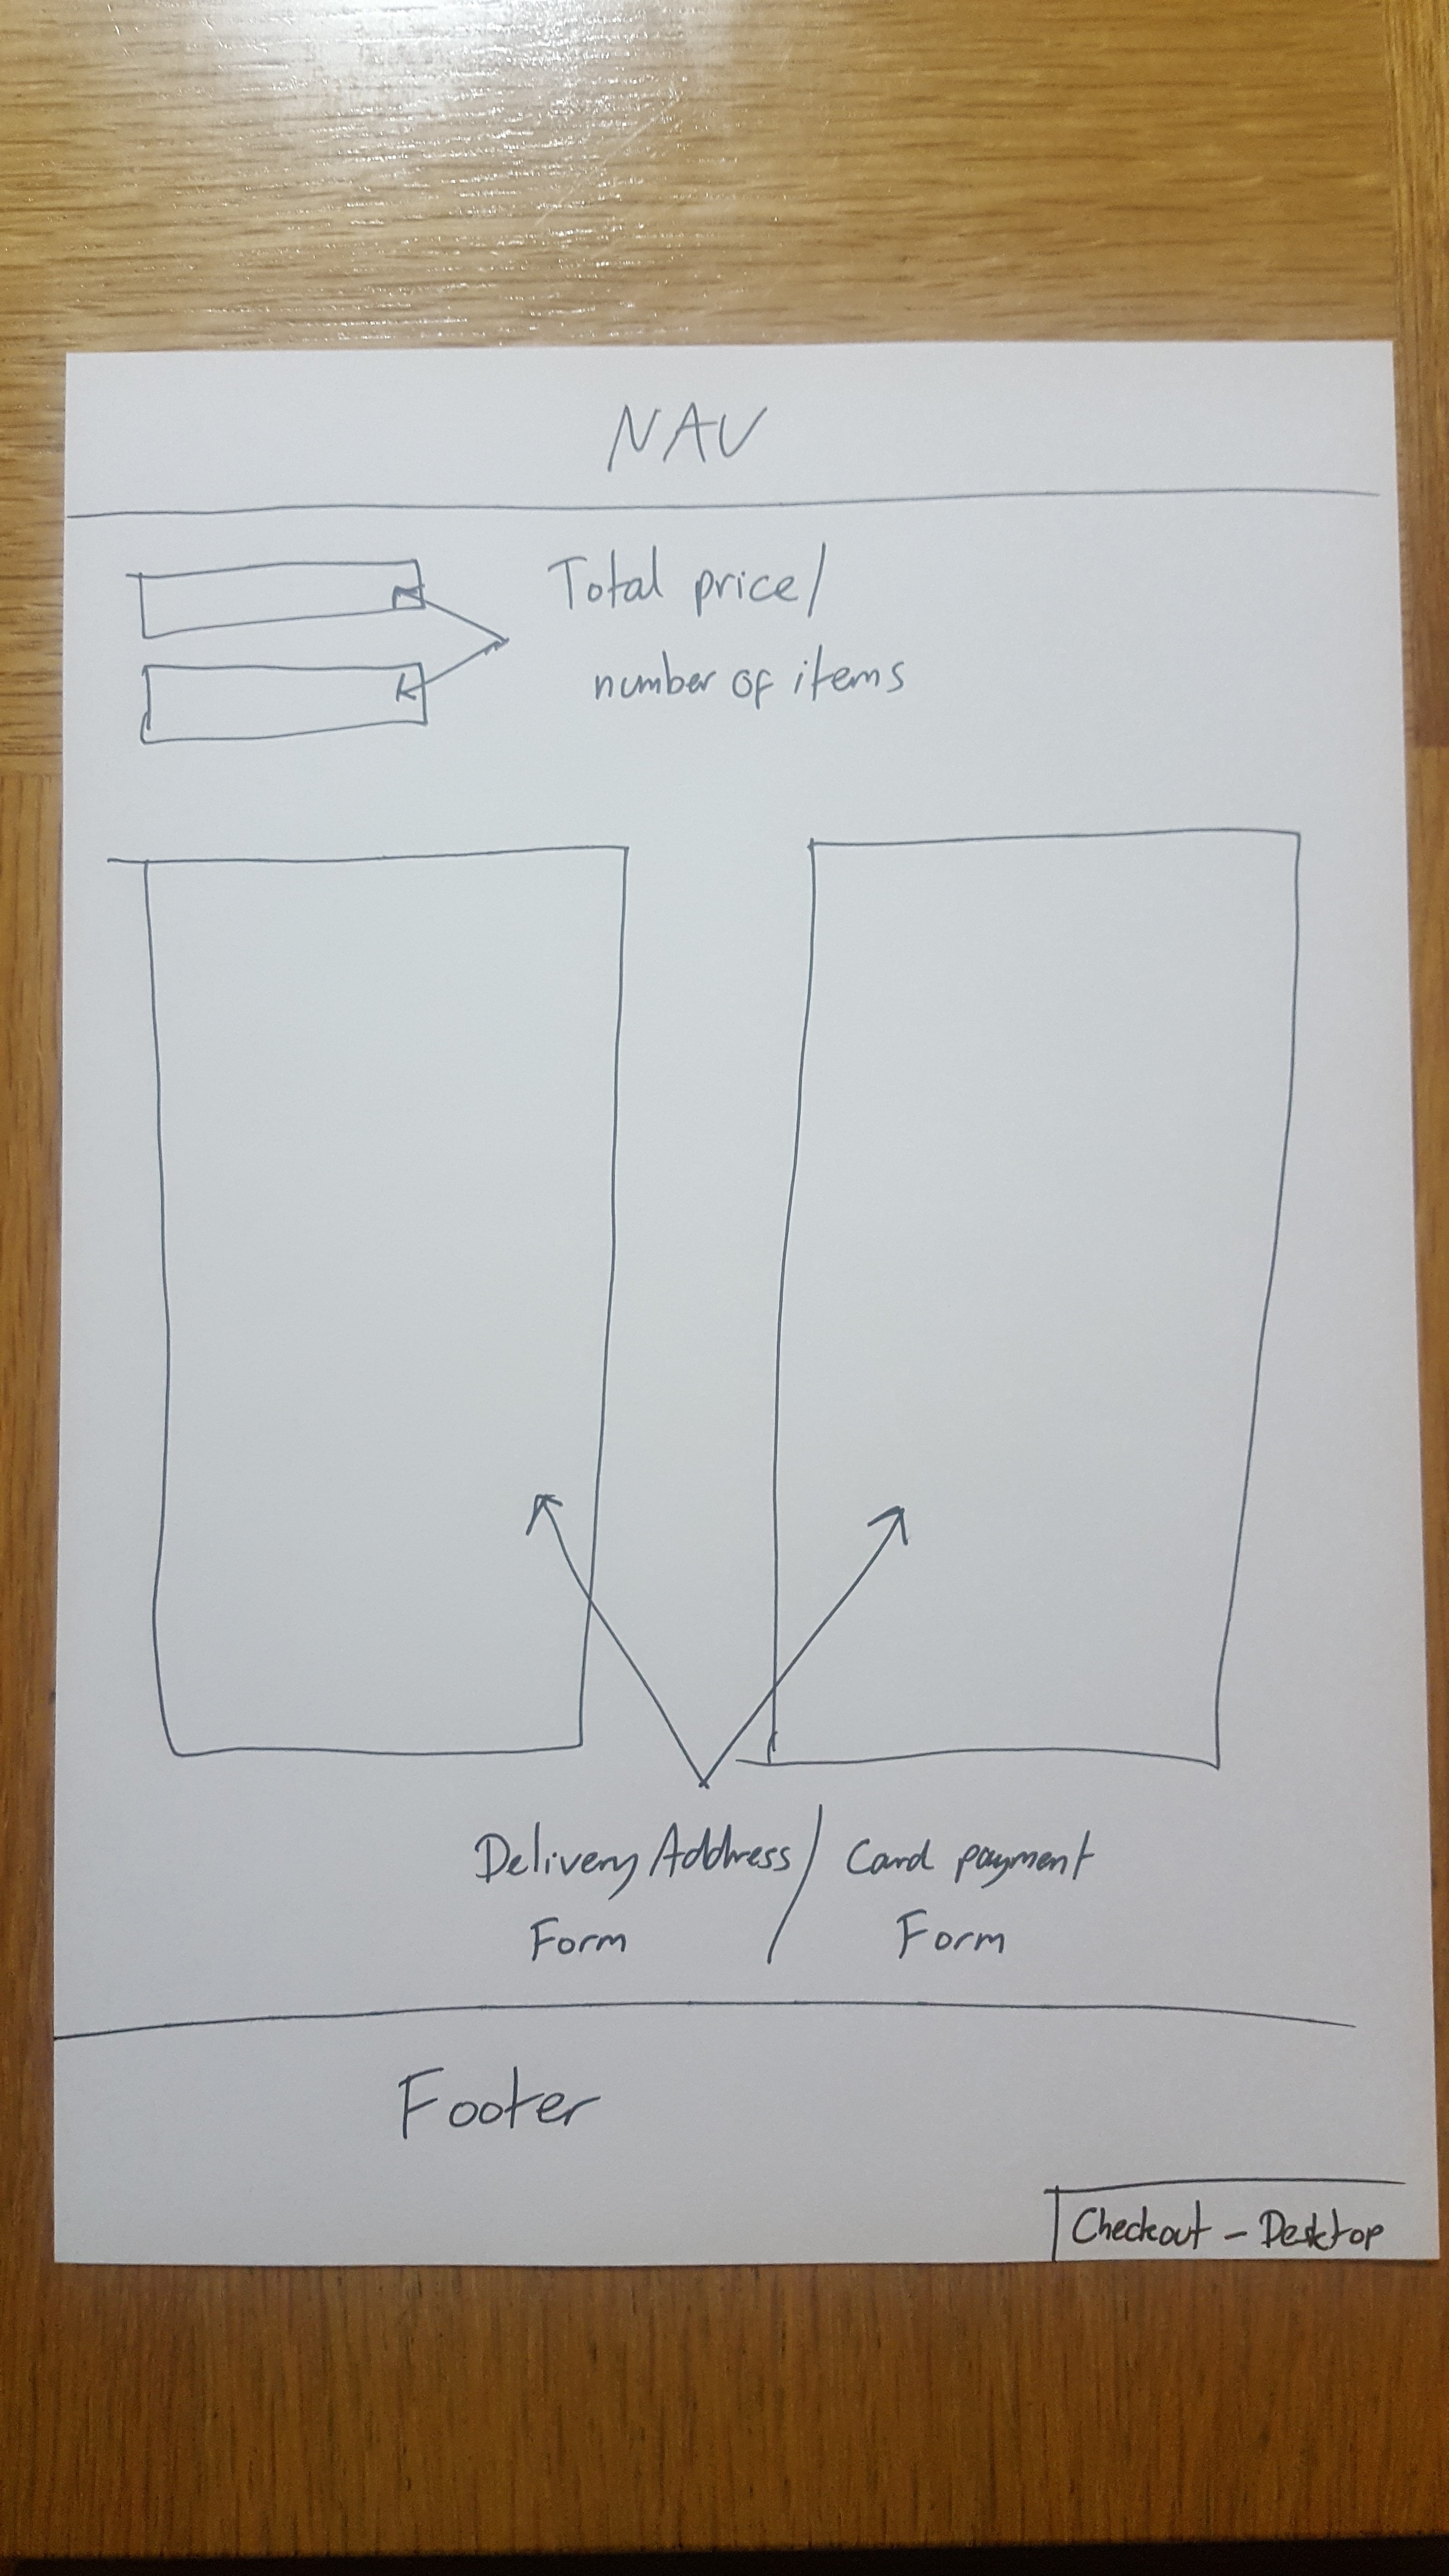 NAV
Total price/
number of items
Delivery Address / Card payment
Form Form
Footer
Checkout - Desktop